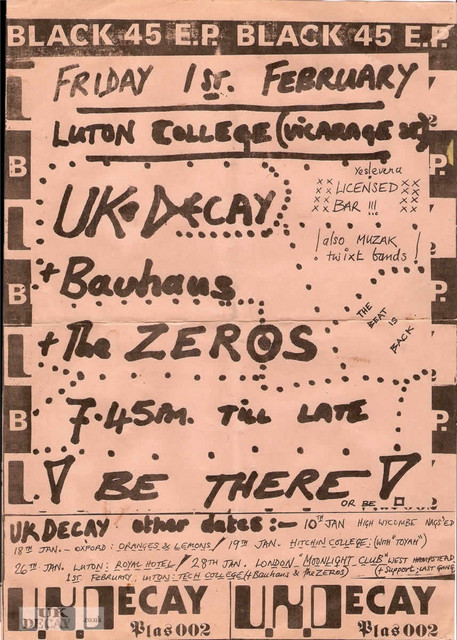 BLACK 45 E.P. BLACK 45 E.P.
FRIDAY 1ST. FEBRUARY
LUTON COLLEGE (VICARAGE ST)
UK DECAY
Yes! even a
xx LICENSED xx
xx BAR !!! xx
! also MUZAK
twixt bands !
+ Bauhaus
+ The ZEROS
THE
BEAT IS
BACK
7.45PM. TILL LATE
! BE THERE !
OR BE
UK DECAY other dates :- 10TH JAN HIGH WYCOMBE NAGS'ED
18TH JAN. - OXFORD: ORANGES & LEMONS / 19TH JAN. HITCHIN COLLEGE: (WITH "TOYAH")
26TH JAN. LUTON: ROYAL HOTEL / 28TH JAN. LONDON "MOONLIGHT CLUB" WEST HAMPSTEAD
1ST FEBRUARY, LUTON: TECH COLLEGE (+ Bauhaus & the ZEROS) (+ Support: LAST GANG)
U.K.DECAY U.K.DECAY
Plas 002 Plas 002
UK
DECAY.co.uk